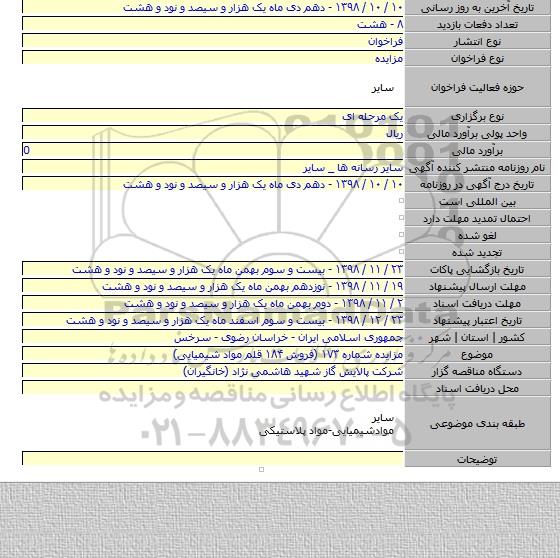 تاریخ آخرین به روز رسانی ۱۰ / ۱۰ / ۱۳۹۸ - دهم دی ماه یک هزار و سیصد و نود و هشت
تعداد دفعات بازدید ۸ - هشت
نوع انتشار فراخوان
نوع فراخوان مزایده
حوزه فعالیت فراخوان سایر
نوع برگزاری یک مرحله ای
واحد پولی برآورد مالی ریال
برآورد مالی 0
نام روزنامه منتشر کننده آگهی سایر رسانه ها _ سایر
تاریخ درج آگهی در روزنامه ۱۰ / ۱۰ / ۱۳۹۸ - دهم دی ماه یک هزار و سیصد و نود و هشت
بین المللی است
احتمال تمدید مهلت دارد
لغو شده
تجدید شده
تاریخ بازگشایی پاکات ۲۳ / ۱۱ / ۱۳۹۸ - بیست و سوم بهمن ماه یک هزار و سیصد و نود و هشت
مهلت ارسال پیشنهاد ۱۹ / ۱۱ / ۱۳۹۸ - نوزدهم بهمن ماه یک هزار و سیصد و نود و هشت
مهلت دریافت اسناد ۲ / ۱۱ / ۱۳۹۸ - دوم بهمن ماه یک هزار و سیصد و نود و هشت
تاریخ اعتبار پیشنهاد ۲۳ / ۱۲ / ۱۳۹۸ - بیست و سوم اسفند ماه یک هزار و سیصد و نود و هشت
کشور | استان | شهر جمهوری اسلامی ایران - خراسان رضوی - سرخس
موضوع مزایده شماره ۱۷۳ (فروش ۱۸۴ قلم مواد شیمیایی)
دستگاه مناقصه گزار شرکت پالایش گاز شهید هاشمی نژاد (خانگیران)
محل دریافت اسناد
پایگاه اطلاع رسانی مناقصه و مزایده
طبقه بندی موضوعی سایر
موادشیمیایی-مواد پلاستیکی
۰۲۱-۸۸۳۴۹۶۷۰-۵
توضیحات
ParsNamadData